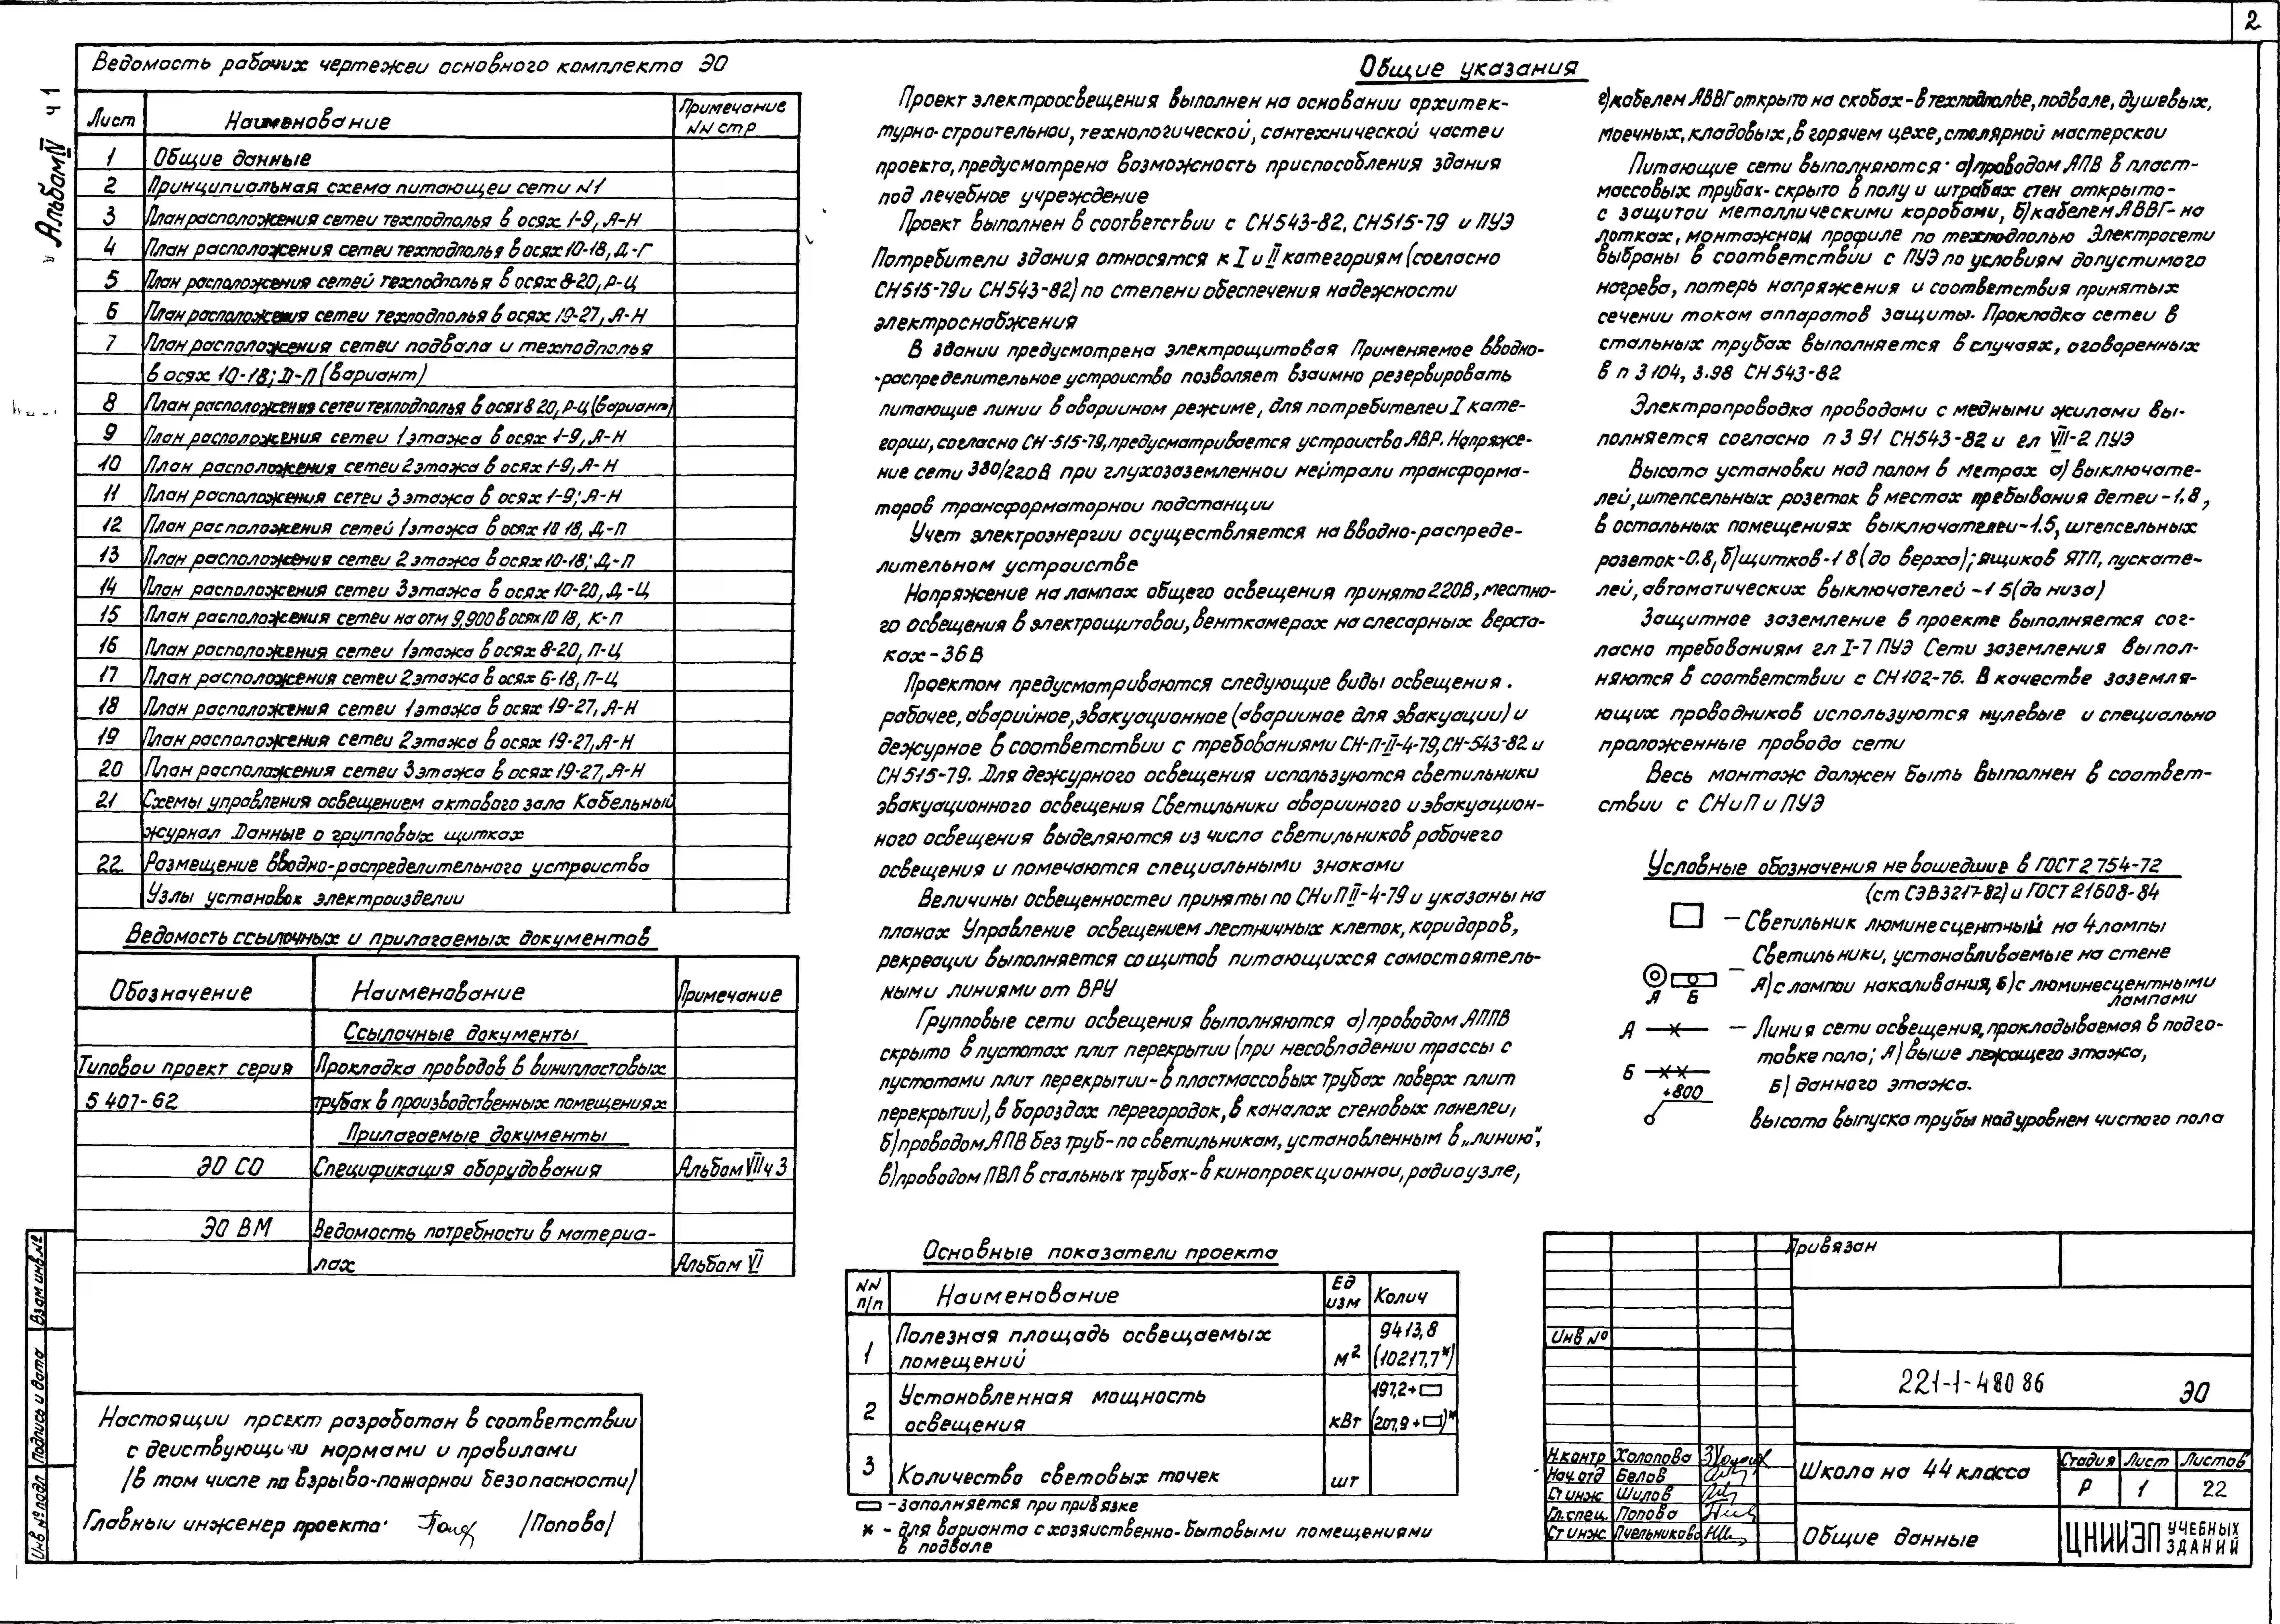 2
"Альбом IV ч 1
Ведомость рабочих чертежей основного комплекта ЭО
Лист Наименование Примечание NN стр
1 Общие данные
2 Принципиальная схема питающеи сети N1
3 План расположения сетеи техподполья в осях 1-9, А-Н
4 План расположения сетеи техподполья в осях 10-18, Д-Г
5 План расположения сетей техподполья в осях 8-20, Р-Ц
6 План расположения сетеи техподполья в осях 19-27, А-Н
7 План расположения сетеи подвала и техподполья
в осях 10-18; Д-П (вариант)
8 План расположения сетеи техподполья в осях 8 20, Р-Ц (вариант)
9 План расположения сетеи 1 этажа в осях 1-9, А-Н
10 План расположения сетеи 2 этажа в осях 1-9, А-Н
11 План расположения сетеи 3 этажа в осях 1-9; А-Н
12 План расположения сетей 1 этажа в осях 10 18, Д-П
13 План расположения сетеи 2 этажа в осях 10-18; Д-П
14 План расположения сетеи 3 этажа в осях 10-20, Д-Ц
15 План расположения сетеи на отм 9,900 в осях 10 18, К-П
16 План расположения сетеи 1 этажа в осях 8-20, П-Ц
17 План расположения сетеи 2 этажа в осях 6-18, П-Ц
18 План расположения сетеи 1 этажа в осях 19-27, А-Н
19 План расположения сетеи 2 этажа в осях 19-27, А-Н
20 План расположения сетеи 3 этажа в осях 19-27, А-Н
21 Схемы управления освещением актового зала Кабельный
журнал Данные о групповых щитках
22 Размещение вводно-распределительного устроиства
Узлы установок электроизделии
Ведомость ссылочных и прилагаемых документов
Обозначение Наименование Примечание
Ссылочные документы
Типовои проект серия Прокладка проводов в винипластовых
5 407-62 трубах в производственных помещениях
Прилагаемые документы
ЭО СО Спецификация оборудования Альбом VII ч 3
ЭО ВМ Ведомость потребности в материа-
лах Альбом VI
Настоящии проект разработан в соответствии
с деиствующими нормами и правилами
/в том числе по взрыво-пожарнои безопасности/
Главныи инженер проекта /Попова/
Инв № подл Подпись и дата Взам инв №
Общие указания
Проект электроосвещения выполнен на основании архитек-
турно-строительнои, технологическои, сантехническои частеи
проекта, предусмотрена возможность приспособления здания
под лечебное учреждение
Проект выполнен в соответствии с СН543-82, СН515-79 и ПУЭ
Потребители здания относятся к I и II категориям (согласно
СН515-79 и СН543-82) по степени обеспечения надежности
электроснабжения
В здании предусмотрена электрощитовая Применяемое вводно-
-распределительное устроиство позволяет взаимно резервировать
питающие линии в авариином режиме, для потребителеи I кате-
гории, согласно СН-515-79, предусматривается устроиство АВР. Напряже-
ние сети 380/220В при глухозаземленнои нейтрали трансформа-
торов трансформаторнои подстанции
Учет электроэнергии осуществляется на вводно-распреде-
лительном устроистве
Напряжение на лампах общего освещения принято 220В, местно-
го освещения в электрощитовои, венткамерах на слесарных верста-
ках - 36 В
Проектом предусматриваются следующие виды освещения.
рабочее, аварийное, эвакуационное (аварииное для эвакуации) и
дежурное в соответствии с требованиями СН-П-II-4-79, СН-543-82 и
СН515-79. Для дежурного освещения используются светильники
эвакуационного освещения Светильники аварииного и эвакуацион-
ного освещения выделяются из числа светильников рабочего
освещения и помечаются специальными знаками
Величины освещенностеи приняты по СНиП II-4-79 и указаны на
планах Управление освещением лестничных клеток, коридоров,
рекреации выполняется со щитов питающихся самостоятель-
ными линиями от ВРУ
Групповые сети освещения выполняются а) проводом АППВ
скрыто в пустотах плит перекрытии (при несовпадении трассы с
пустотами плит перекрытии - в пластмассовых трубах поверх плит
перекрытии), в бороздах перегородок, в каналах стеновых панелеи,
б) проводом АПВ без труб - по светильникам, установленным в „линию",
в) проводом ПВЛ в стальных трубах - в кинопроекционнои, радиоузле,
Основные показатели проекта
NN п/п Наименование Ед изм Колич
1 Полезная площадь освещаемых помещений м² 9413,8 (10217,7*)
2 Установленная мощность освещения кВт 197,2+▭ (207,9+▭)*
3 Количество световых точек шт
▭ - заполняется при привязке
* - для варианта с хозяиственно-бытовыми помещениями
в подвале
г) кабелем АВВГ открыто на скобах - в техподполье, подвале, душевых,
моечных, кладовых, в горячем цехе, столярной мастерскои
Питающие сети выполняются а) проводом АПВ в пласт-
массовых трубах - скрыто в полу и штрабах стен открыто -
с защитои металлическими коробами, б) кабелем АВВГ - на
лотках, монтажном профиле по техподполью Электросети
выбраны в соответствии с ПУЭ по условиям допустимого
нагрева, потерь напряжения и соответствия принятых
сечении токам аппаратов защиты. Прокладка сетеи в
стальных трубах выполняется в случаях, оговоренных
в п 3 104, 3.98 СН543-82
Электропроводка проводами с медными жилами вы-
полняется согласно п 3 91 СН543-82 и гл VII-2 ПУЭ
Высота установки над полом в метрах а) выключате-
лей, штепсельных розеток в местах пребывания детеи - 1,8,
в остальных помещениях выключателеи - 1.5, штепсельных
розеток - 0.8, б) щитков - 1 8 (до верха); ящиков ЯТП, пускате-
лей, автоматических выключателей - 1 5 (до низа)
Защитное заземление в проекте выполняется сог-
ласно требованиям гл I-7 ПУЭ Сети заземления выпол-
няются в соответствии с СН102-76. В качестве заземля-
ющих проводников используются нулевые и специально
проложенные провода сети
Весь монтаж должен быть выполнен в соответ-
ствии с СНиП и ПУЭ
Условные обозначения не вошедшие в ГОСТ 2 754-72
(ст СЭВ3217-82) и ГОСТ 21608-84
- Светильник люминесцентный на 4 лампы
Светильники, устанавливаемые на стене
А Б - А) с лампои накаливания, Б) с люминесцентными
лампами
А - Линия сети освещения, прокладываемая в подго-
товке пола; А) выше лежащего этажа,
Б Б) данного этажа.
+800 высота выпуска трубы над уровнем чистого пола
Привязан
Инв №
221-1-480 86 ЭО
Н.контр Холопова
Нач.отд Белов
Ст инж Шилов
Гл.спец. Попова
Ст инж. Пчельникова
Школа на 44 класса
Стадия Лист Листов
Р 1 22
Общие данные
ЦНИИЭП УЧЕБНЫХ ЗДАНИЙ